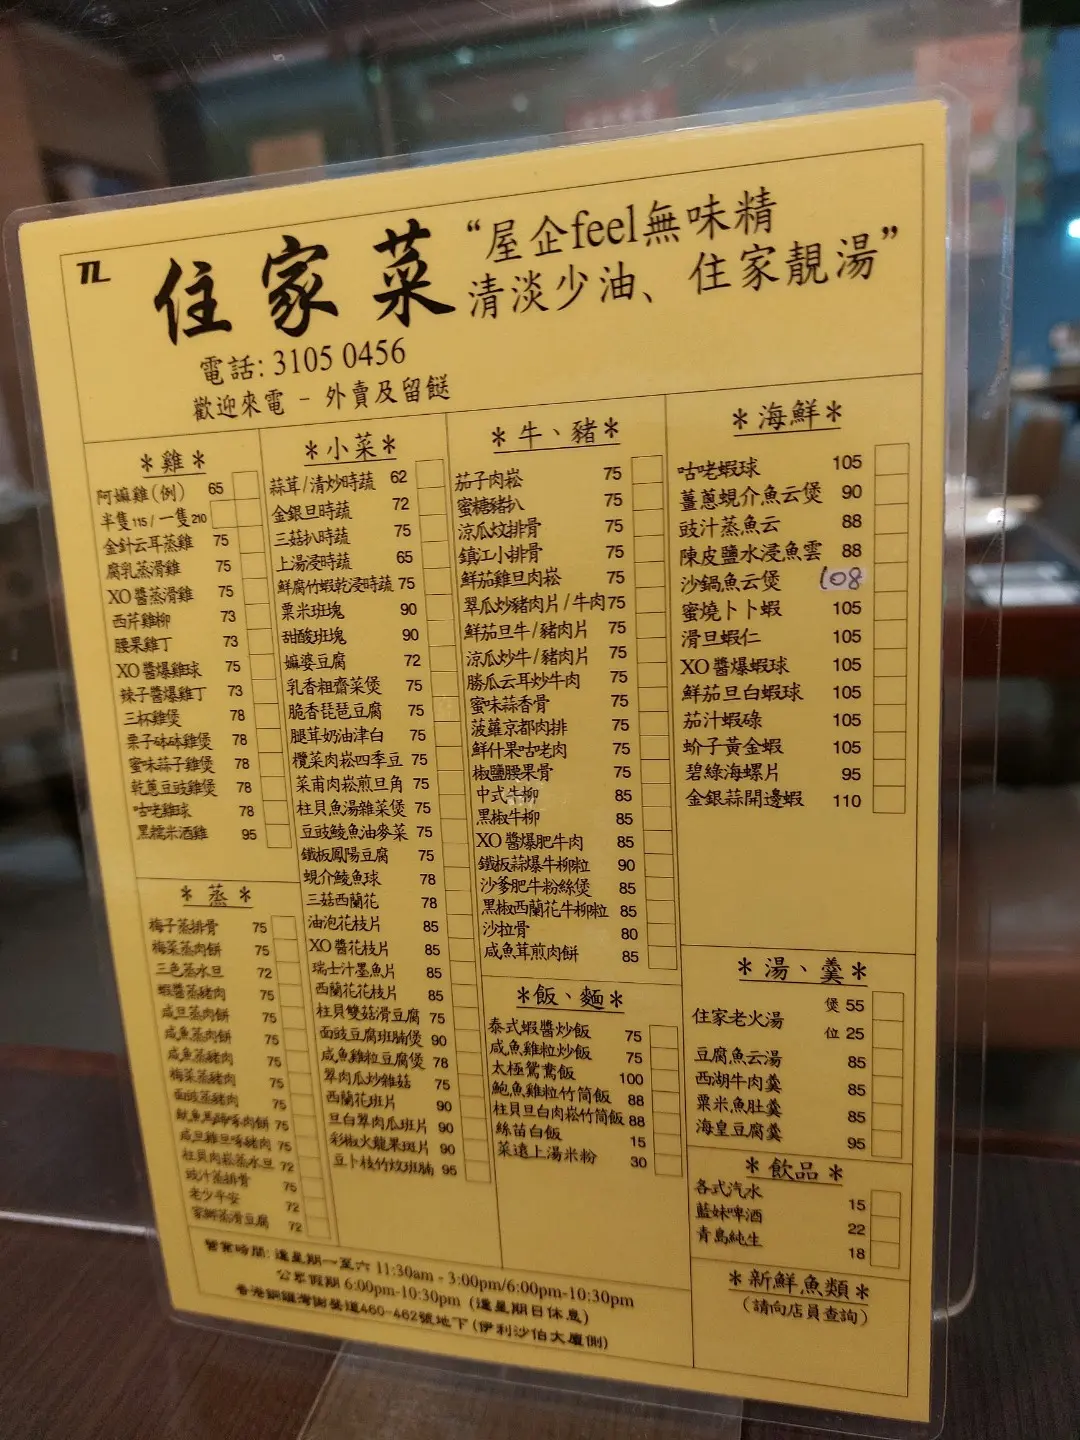 TL
住家菜
“屋企feel無味精
清淡少油、住家靚湯”
電話: 3105 0456
歡迎來電 - 外賣及留餸
＊雞＊
阿嫲雞(例) 65
半隻115/一隻210
金針云耳蒸雞 75
腐乳蒸滑雞 75
XO醬蒸滑雞 75
西芹雞柳 73
腰果雞丁 73
XO醬爆雞球 75
辣子醬爆雞丁 73
三杯雞煲 78
栗子砵砵雞煲 78
蜜味蒜子雞煲 78
乾蔥豆豉雞煲 78
咕咾雞球 78
黑糯米酒雞 95
＊蒸＊
梅子蒸排骨 75
梅菜蒸肉餅 75
三色蒸水旦 72
蝦醬蒸豬肉 75
咸旦蒸肉餅 75
咸魚蒸肉餅 75
咸魚蒸豬肉 75
梅菜蒸豬肉 75
面豉蒸豬肉 75
魷魚馬蹄啄肉餅 75
咸旦雞旦啄豬肉 75
柱貝肉崧蒸水旦 72
豉汁蒸排骨 75
老少平安 72
家鄉蒸滑豆腐 72
＊小菜＊
蒜茸/清炒時蔬 62
金銀旦時蔬 72
三菇扒時蔬 75
上湯浸時蔬 65
鮮腐竹蝦乾浸時蔬 75
粟米班塊 90
甜酸班塊 90
嫲婆豆腐 72
乳香粗齋菜煲 75
脆香琵琶豆腐 75
腿茸奶油津白 75
欖菜肉崧四季豆 75
菜甫肉崧煎旦角 75
柱貝魚湯雜菜煲 75
豆豉鯪魚油麥菜 75
鐵板鳳陽豆腐 75
蜆介鯪魚球 78
三菇西蘭花 78
油泡花枝片 85
XO醬花枝片 85
瑞士汁墨魚片 85
西蘭花花枝片 85
柱貝雙菇滑豆腐 75
面豉豆腐班腩煲 90
咸魚雞粒豆腐煲 78
翠肉瓜炒雜菇 75
西蘭花班片 90
旦白翠肉瓜班片 90
彩椒火龍果班片 90
豆卜枝竹炆班腩 95
＊牛、豬＊
茄子肉崧 75
蜜糖豬扒 75
涼瓜炆排骨 75
鎮江小排骨 75
鮮茄雞旦肉崧 75
翠瓜炒豬肉片/牛肉 75
鮮茄旦牛/豬肉片 75
涼瓜炒牛/豬肉片 75
勝瓜云耳炒牛肉 75
蜜味蒜香骨 75
菠蘿京都肉排 75
鮮什果咕咾肉 75
椒鹽腰果骨 75
中式牛柳 85
黑椒牛柳 85
XO醬爆肥牛肉 85
鐵板蒜爆牛柳粒 90
沙爹肥牛粉絲煲 85
黑椒西蘭花牛柳粒 85
沙拉骨 80
咸魚茸煎肉餅 85
＊飯、麵＊
泰式蝦醬炒飯 75
咸魚雞粒炒飯 75
太極鴛鴦飯 100
鮑魚雞粒竹筒飯 88
柱貝旦白肉崧竹筒飯 88
絲苗白飯 15
菜遠上湯米粉 30
＊海鮮＊
咕咾蝦球 105
薑蔥蜆介魚云煲 90
豉汁蒸魚云 88
陳皮鹽水浸魚雲 88
沙鍋魚云煲 108
蜜燒卜卜蝦 105
滑旦蝦仁 105
XO醬爆蝦球 105
鮮茄旦白蝦球 105
茄汁蝦碌 105
蚧子黃金蝦 105
碧綠海螺片 95
金銀蒜開邊蝦 110
＊湯、羹＊
住家老火湯 煲 55
位 25
豆腐魚云湯 85
西湖牛肉羹 85
粟米魚肚羹 85
海皇豆腐羹 95
＊飲品＊
各式汽水 15
藍妹啤酒 22
青島純生 18
＊新鮮魚類＊
(請向店員查詢)
營業時間: 逢星期一至六 11:30am - 3:00pm/6:00pm-10:30pm
公眾假期 6:00pm-10:30pm (逢星期日休息)
香港銅鑼灣謝斐道460-462號地下(伊利沙伯大廈側)